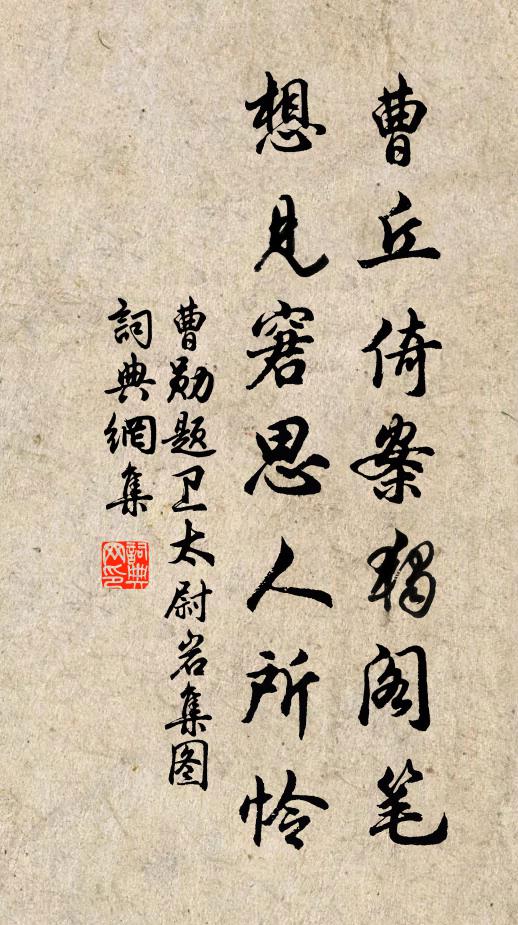 曹丘倚案独阁笔
想见窘思人所怜
曹勋题卫太尉岩集图
詞典網集
詞典